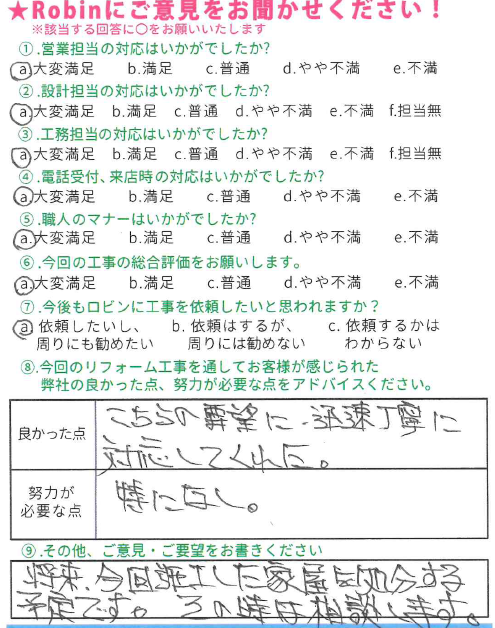 ★Robinにご意見をお聞かせください!
※該当する回答に〇をお願いいたします
①.営業担当の対応はいかがでしたか?
a.大変満足 b.満足 c.普通 d.やや不満 e.不満
②.設計担当の対応はいかがでしたか?
a.大変満足 b.満足 c.普通 d.やや不満 e.不満 f.担当無
③.工務担当の対応はいかがでしたか?
a.大変満足 b.満足 c.普通 d.やや不満 e.不満 f.担当無
④.電話受付、来店時の対応はいかがでしたか?
a.大変満足 b.満足 c.普通 d.やや不満 e.不満
⑤.職人のマナーはいかがでしたか?
a.大変満足 b.満足 c.普通 d.やや不満 e.不満
⑥.今回の工事の総合評価をお願いします。
a.大変満足 b.満足 c.普通 d.やや不満 e.不満
⑦.今後もロビンに工事を依頼したいと思われますか?
a. 依頼したいし、 b. 依頼はするが、 c. 依頼するかは
周りにも勧めたい 周りには勧めない わからない
⑧.今回のリフォーム工事を通してお客様が感じられた
弊社の良かった点、努力が必要な点をアドバイスください。
良かった点
こちらの要望に、迅速丁寧に
対応してくれた。
努力が
必要な点
特になし。
⑨.その他、ご意見・ご要望をお書きください
将来、今回施工した家屋を処分する
予定です。その時は相談します。